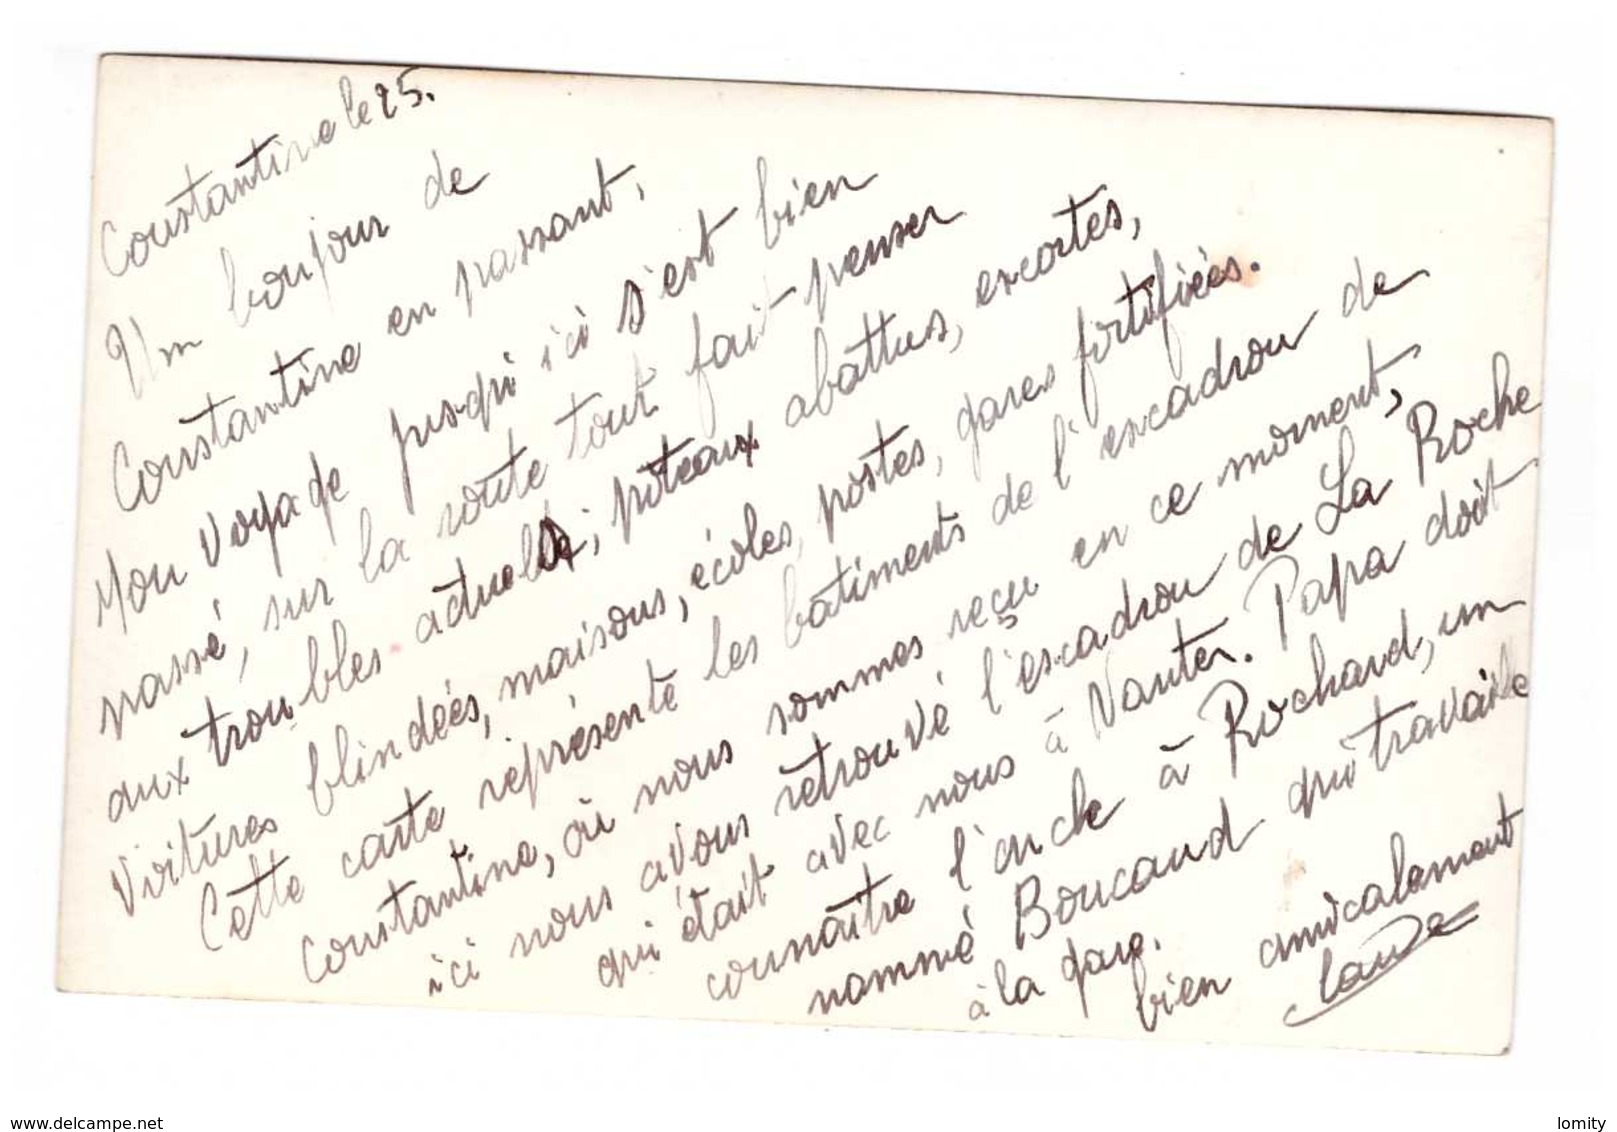 Constantine le 25.
Un bonjour de
Constantine en passant.
Mon voyage jusqu'ici s'est bien
passé, sur la route tout fait penser
aux troubles actuels; poteaux abattus, excortes,
voitures blindées, maisons, écoles, postes, gares fortifiées.
Cette carte représente les bâtiments de l'excadron de
Constantine, où nous sommes reçu en ce moment,
ici nous avons retrouvé l'escadron de La Roche
qui était avec nous à Nanter. Papa doit
connaître l'oncle à Rochard, un
nommé Boucaud qui travaille
à la gare.
bien amicalement
Claude
www.delcampe.net
lomity